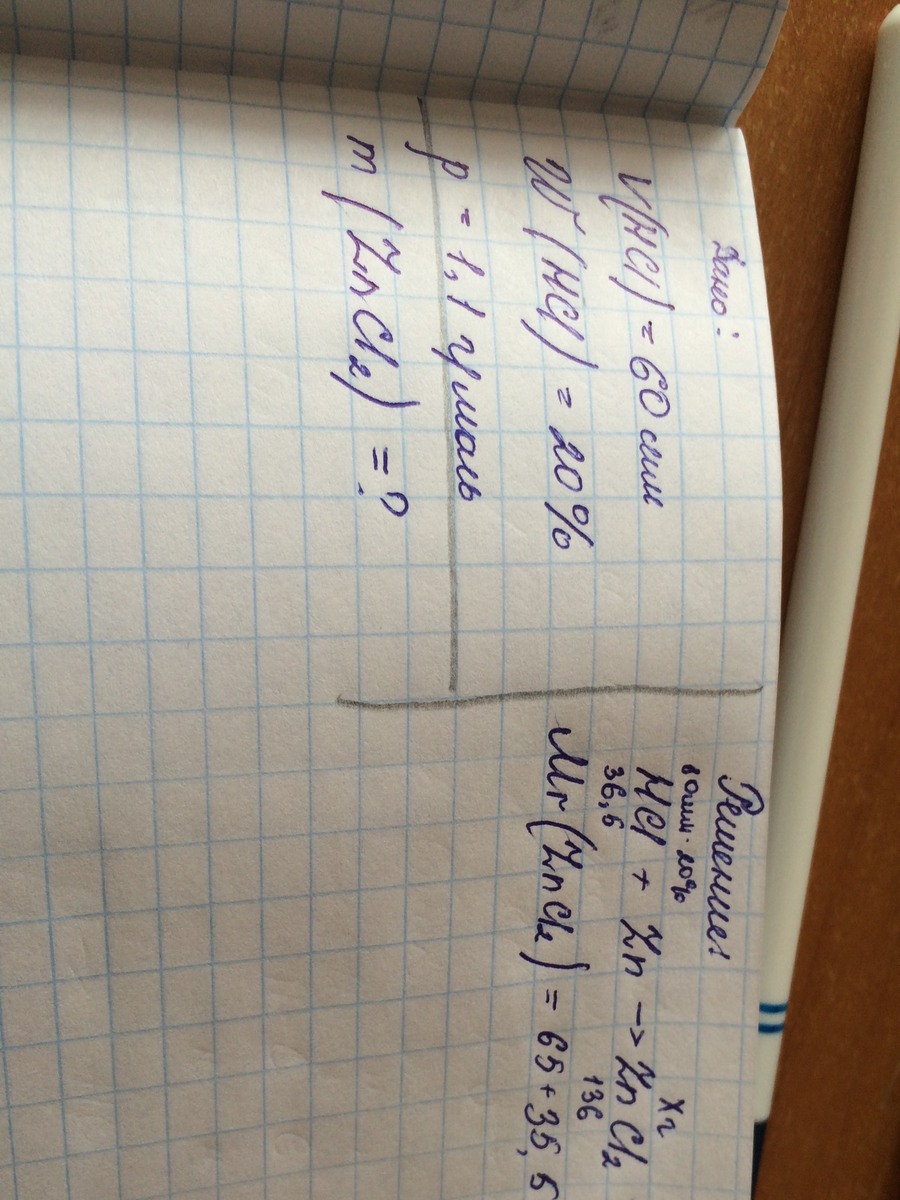 Дано:
V(HCl) = 60 мл
W (HCl) = 20%
p = 1,1 г/моль
m (ZnCl₂) = ?
Решение:
60мл · 20% Xг
HCl + Zn → ZnCl₂
36,6 136
Mr (ZnCl₂) = 65 + 35,5